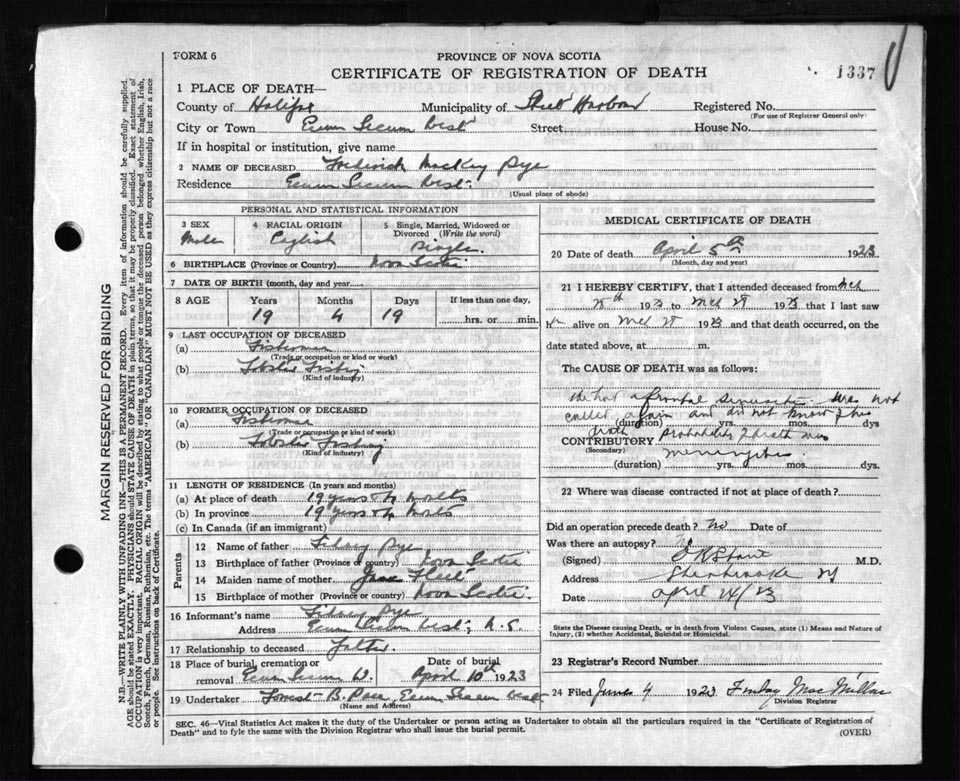 FORM 6
PROVINCE OF NOVA SCOTIA
CERTIFICATE OF REGISTRATION OF DEATH
1337
1 PLACE OF DEATH—
County of Halifax Municipality of Sheet Harbour Registered No.
(For use of Registrar General only)
City or Town Ecum Secum West Street House No.
If in hospital or institution, give name
2 NAME OF DECEASED Frederick Mackay Pye
Residence Ecum Secum West
(Usual place of abode)
PERSONAL AND STATISTICAL INFORMATION
3 SEX 4 RACIAL ORIGIN 5 Single, Married, Widowed or Divorced (Write the word)
Male English Single
6 BIRTHPLACE (Province or Country) Nova Scotia
7 DATE OF BIRTH (month, day and year)
8 AGE Years Months Days If less than one day,
19 4 19 hrs. or min.
9 LAST OCCUPATION OF DECEASED
(a) Fisherman
(Trade or occupation or kind or work)
(b) Lobster Fishing
(Kind of industry)
10 FORMER OCCUPATION OF DECEASED
(a) Fisherman
(Trade or occupation or kind of work)
(b) Lobster Fishing
(Kind of industry)
11 LENGTH OF RESIDENCE (In years and months)
(a) At place of death 19 years & 4 months
(b) In province 19 years & 4 months
(c) In Canada (if an immigrant)
Parents
12 Name of father Sidney Pye
13 Birthplace of father (Province or country) Nova Scotia
14 Maiden name of mother Jane
15 Birthplace of mother (Province or country) Nova Scotia
16 Informant's name Sidney Pye
Address Ecum Secum West, N.S.
17 Relationship to deceased Father
18 Place of burial, cremation or removal Ecum Secum W. Date of burial April 10th 1923
19 Undertaker Forrest B. Pace Ecum Secum West
(Name and Address)
MEDICAL CERTIFICATE OF DEATH
20 Date of death April 5th 1923
(Month, day and year)
21 I HEREBY CERTIFY, that I attended deceased from Mch
1923 to Mch 1923 that I last saw
h alive on Mch 1923 and that death occurred, on the
date stated above, at m.
The CAUSE OF DEATH was as follows:
He had a frontal sinusitis. Was not
called again and do not know
(duration) yrs. mos. dys
CONTRIBUTORY probability death was
(Secondary) meningitis
(duration) yrs. mos. dys.
22 Where was disease contracted if not at place of death?
Did an operation precede death? No Date of
Was there an autopsy? No
(Signed) M.D.
Address Sherbrooke NS
Date April 24/23
State the Disease causing Death, or in death from Violent Causes, state (1) Means and Nature of Injury, (2) whether Accidental, Suicidal or Homicidal.
23 Registrar's Record Number
24 Filed June 4 1923 Finday MacMillan
Division Registrar
SEC. 46—Vital Statistics Act makes it the duty of the Undertaker or person acting as Undertaker to obtain all the particulars required in the "Certificate of Registration of
Death" and to fyle the same with the Division Registrar who shall issue the burial permit.
(OVER)
MARGIN RESERVED FOR BINDING
N.B.—WRITE PLAINLY WITH UNFADING INK—THIS IS A PERMANENT RECORD. Every item of information should be carefully supplied.
AGE should be stated EXACTLY. PHYSICIANS should STATE CAUSE OF DEATH in plain terms, so that it may be properly classified. Exact statement of
OCCUPATION is very important. RACIAL ORIGIN will be described by stating to what people or tongue the deceased person belonged whether English, Irish,
Scotch, French, German, Russian, Ruthenian, etc. The terms "AMERICAN" OR "CANADIAN" MUST NOT BE USED as they express citizenship but not a race
or people. See instructions on back of Certificate.